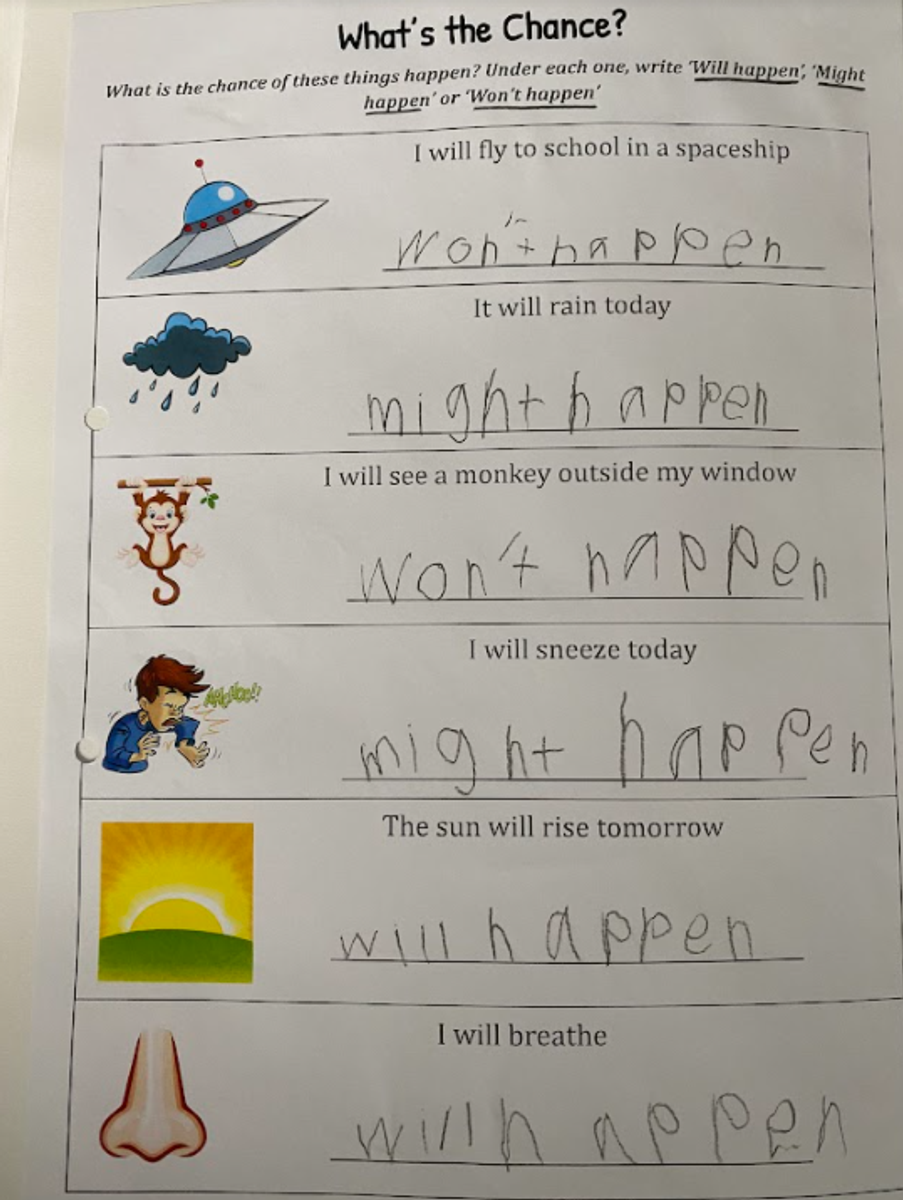 What's the Chance?
What is the chance of these things happen? Under each one, write 'Will happen', 'Might
happen' or 'Won't happen'
I will fly to school in a spaceship
Won't happen
It will rain today
might happen
I will see a monkey outside my window
Won't happen
I will sneeze today
might happen
The sun will rise tomorrow
will happen
I will breathe
will happen